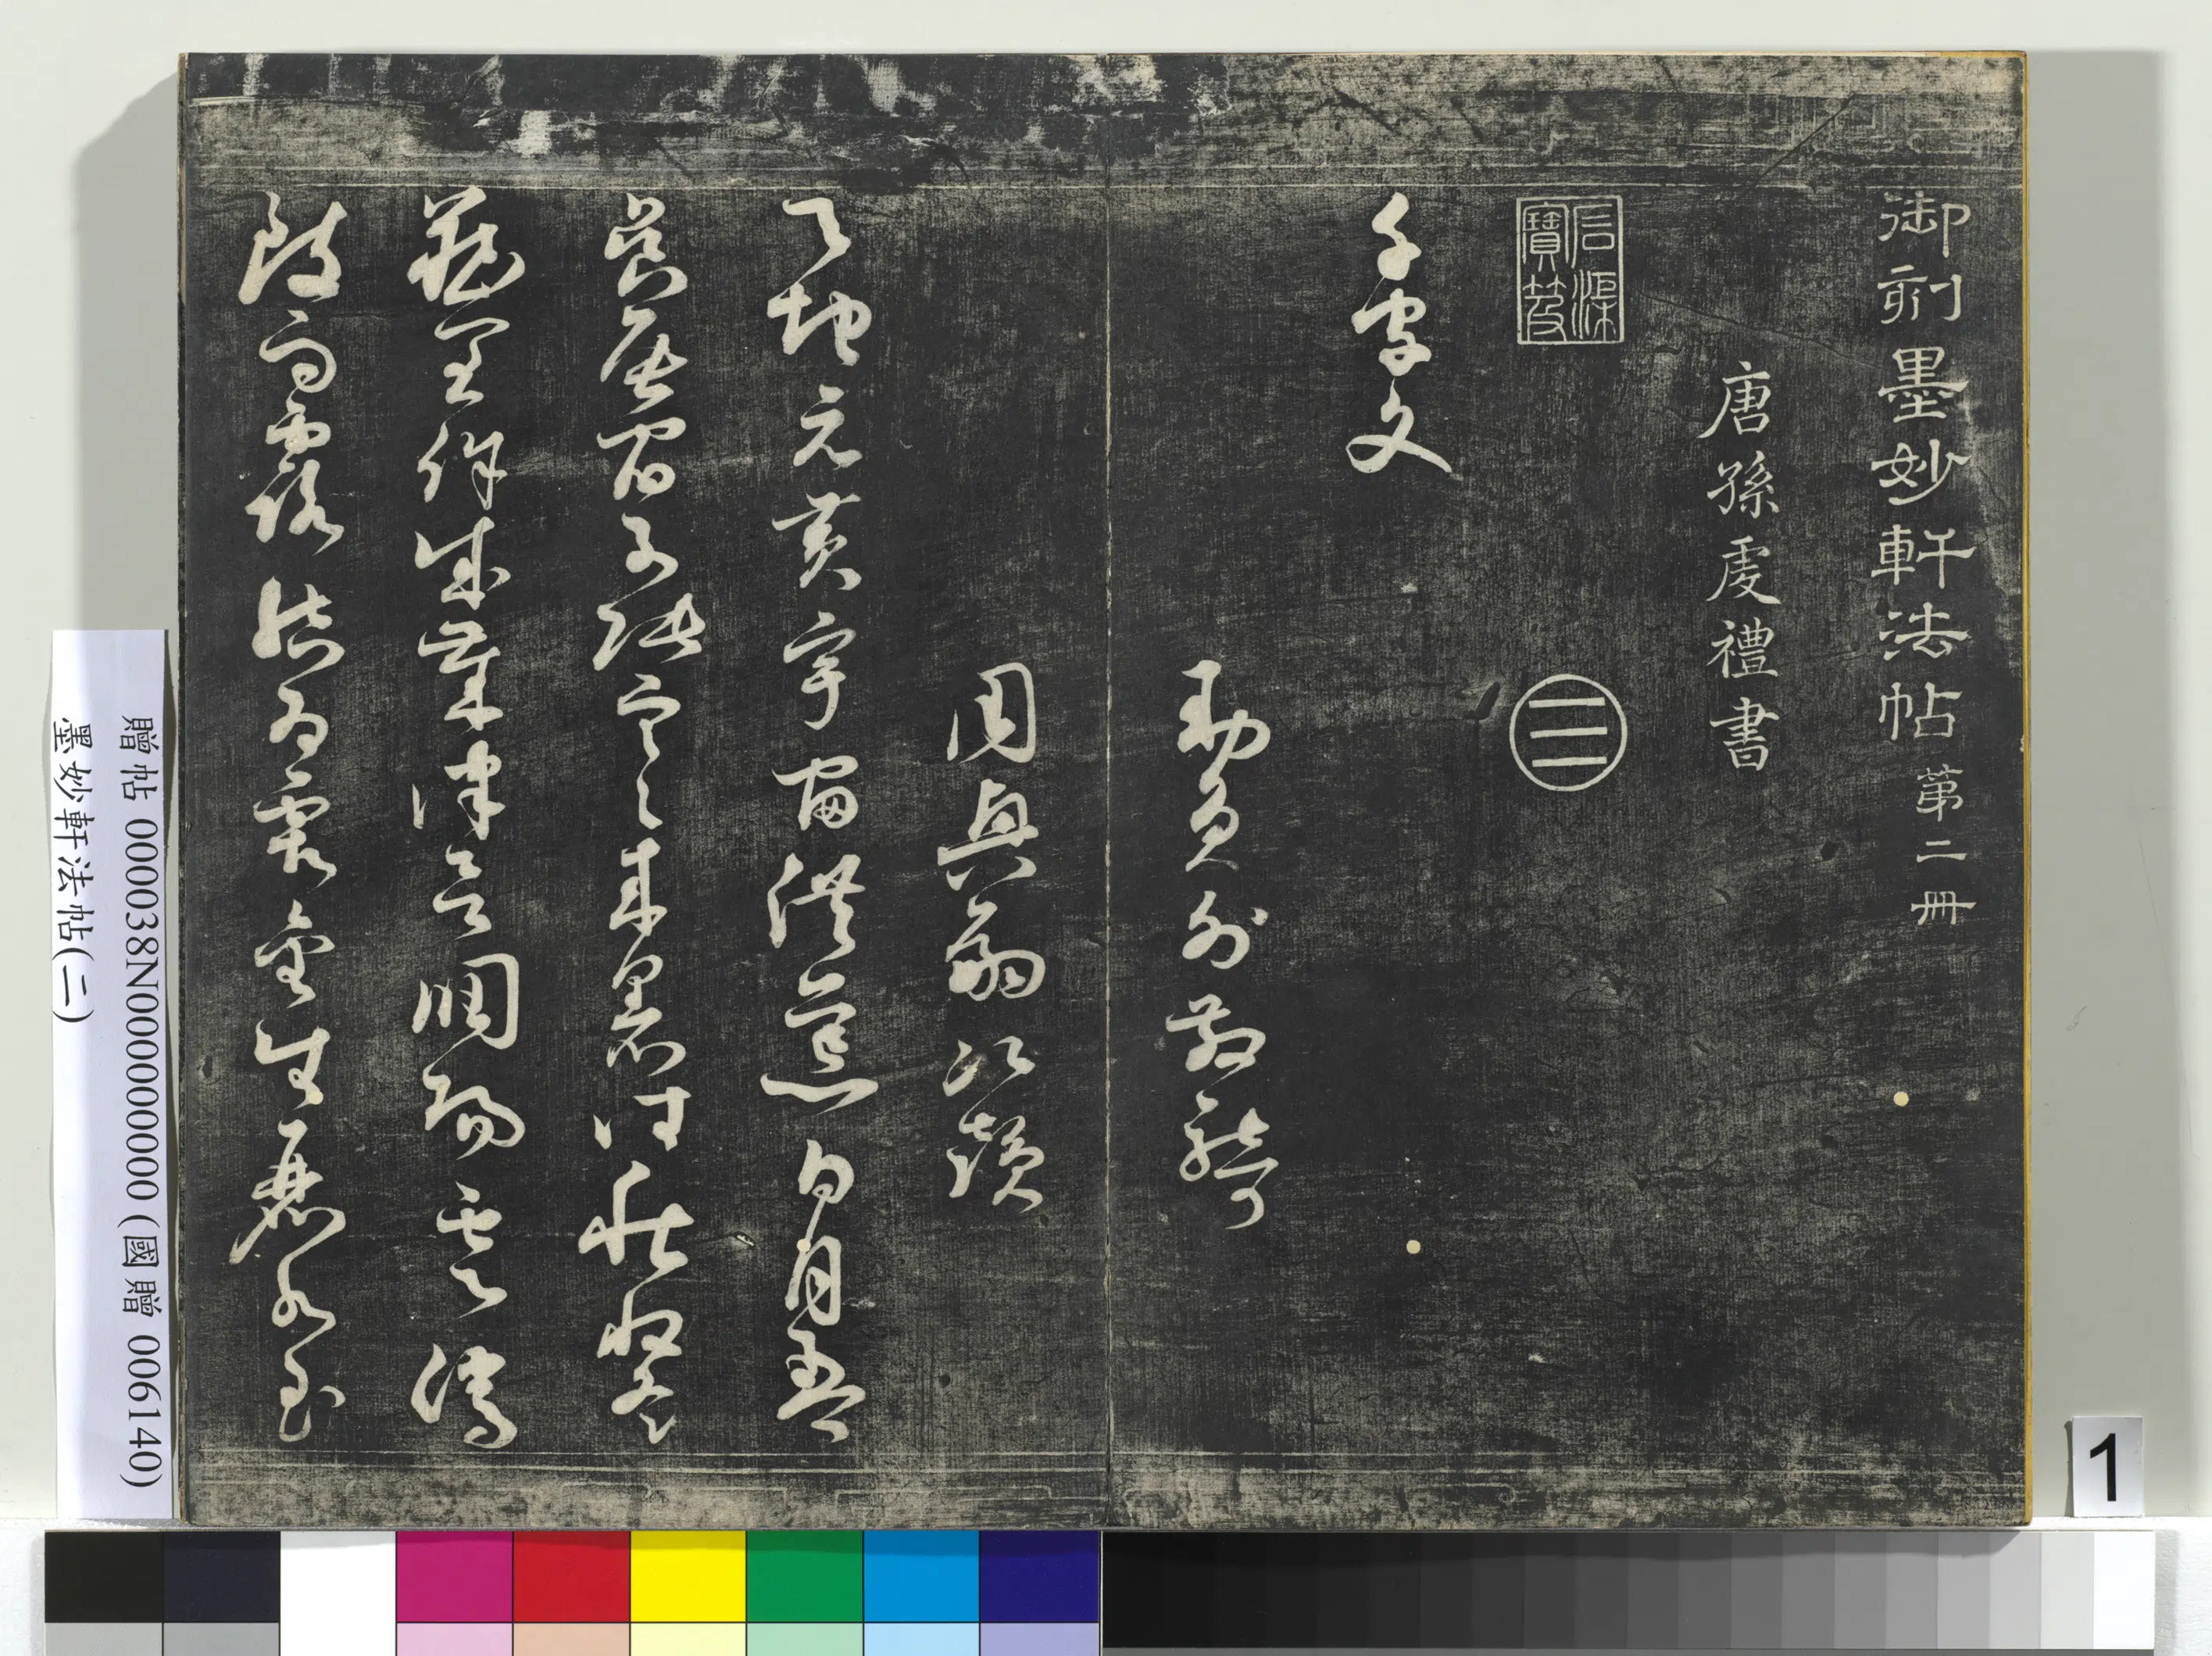 御刻墨妙軒法帖第二冊
唐孫虔禮書
石渠寶笈
千字文
勅員外散騎
周興嗣次韻
天地元黃宇宙洪荒日月盈
昃辰宿列張寒來暑往秋收冬
藏閏餘成歲律呂調陽雲騰
致雨露結為霜金生麗水玉
贈帖 000038N000000000 (國贈 006140)
墨妙軒法帖(二)
1